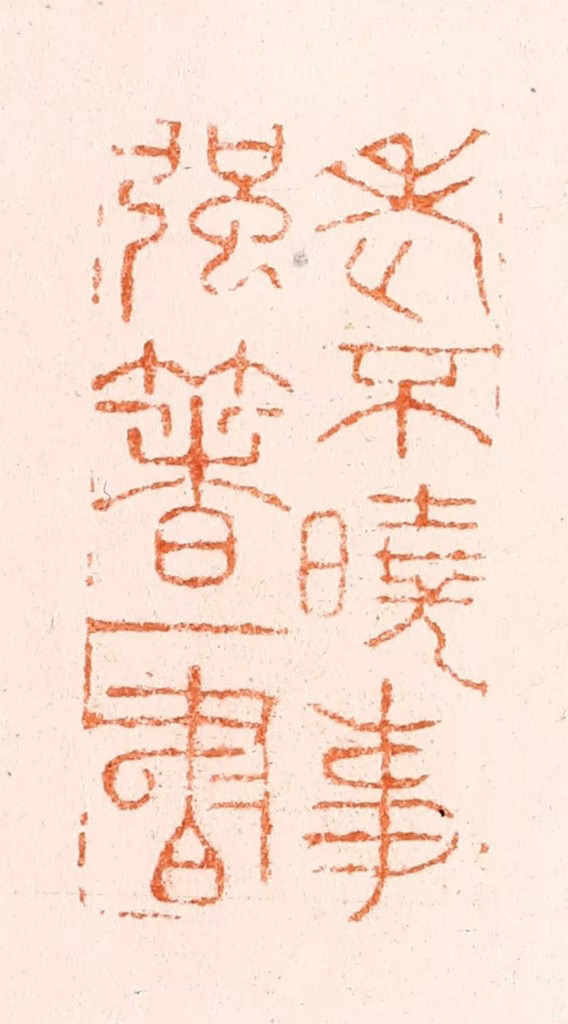 老不曉事
强著一書